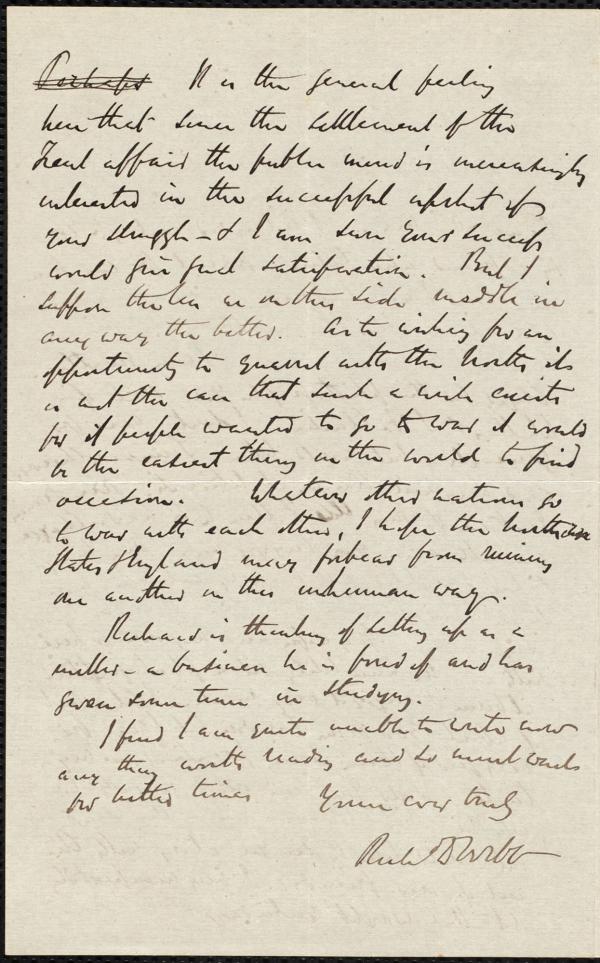 Perhaps It is the general feeling
here that since the settlement of the
Trent affair the public mind is increasingly
interested in the successful upshot of
your struggle - & I am sure your success
would give great satisfaction. But I
suppose the less we on this side meddle in
any way the better. As to wishing for an
opportunity to quarrel with the North its
is not the case that such a wish exists
for if people wanted to go to war it would
be the easiest thing in the world to find
occasion. Whatever other nations go
to war with each other, I hope the Northern
States & England may forbear from ruining
one another in this inhuman way.
Richard is thinking of setting up as a
miller - a business he is fond of and has
given some time in studying.
I find I am quite unable to write now
any thing worth reading and so must wait
for better times Yours ever truly
Richd D Webb